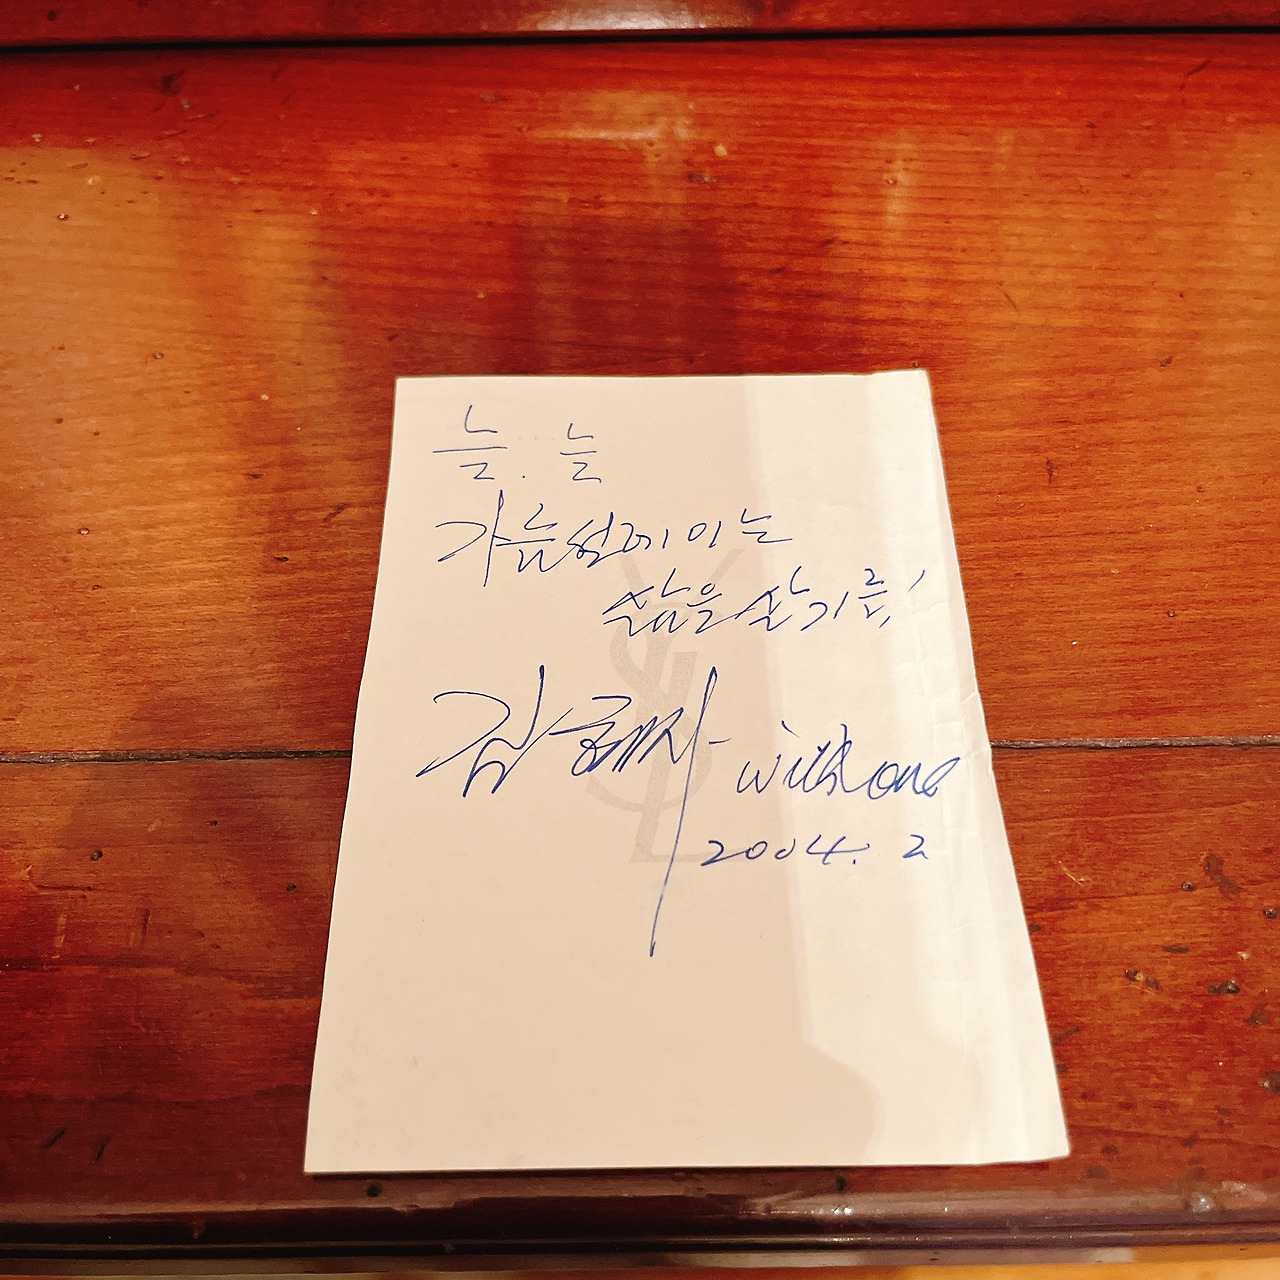 늘. 늘
가슴설레이는
삶을 살기를!
김혜자
with one
2004. 2
YSL